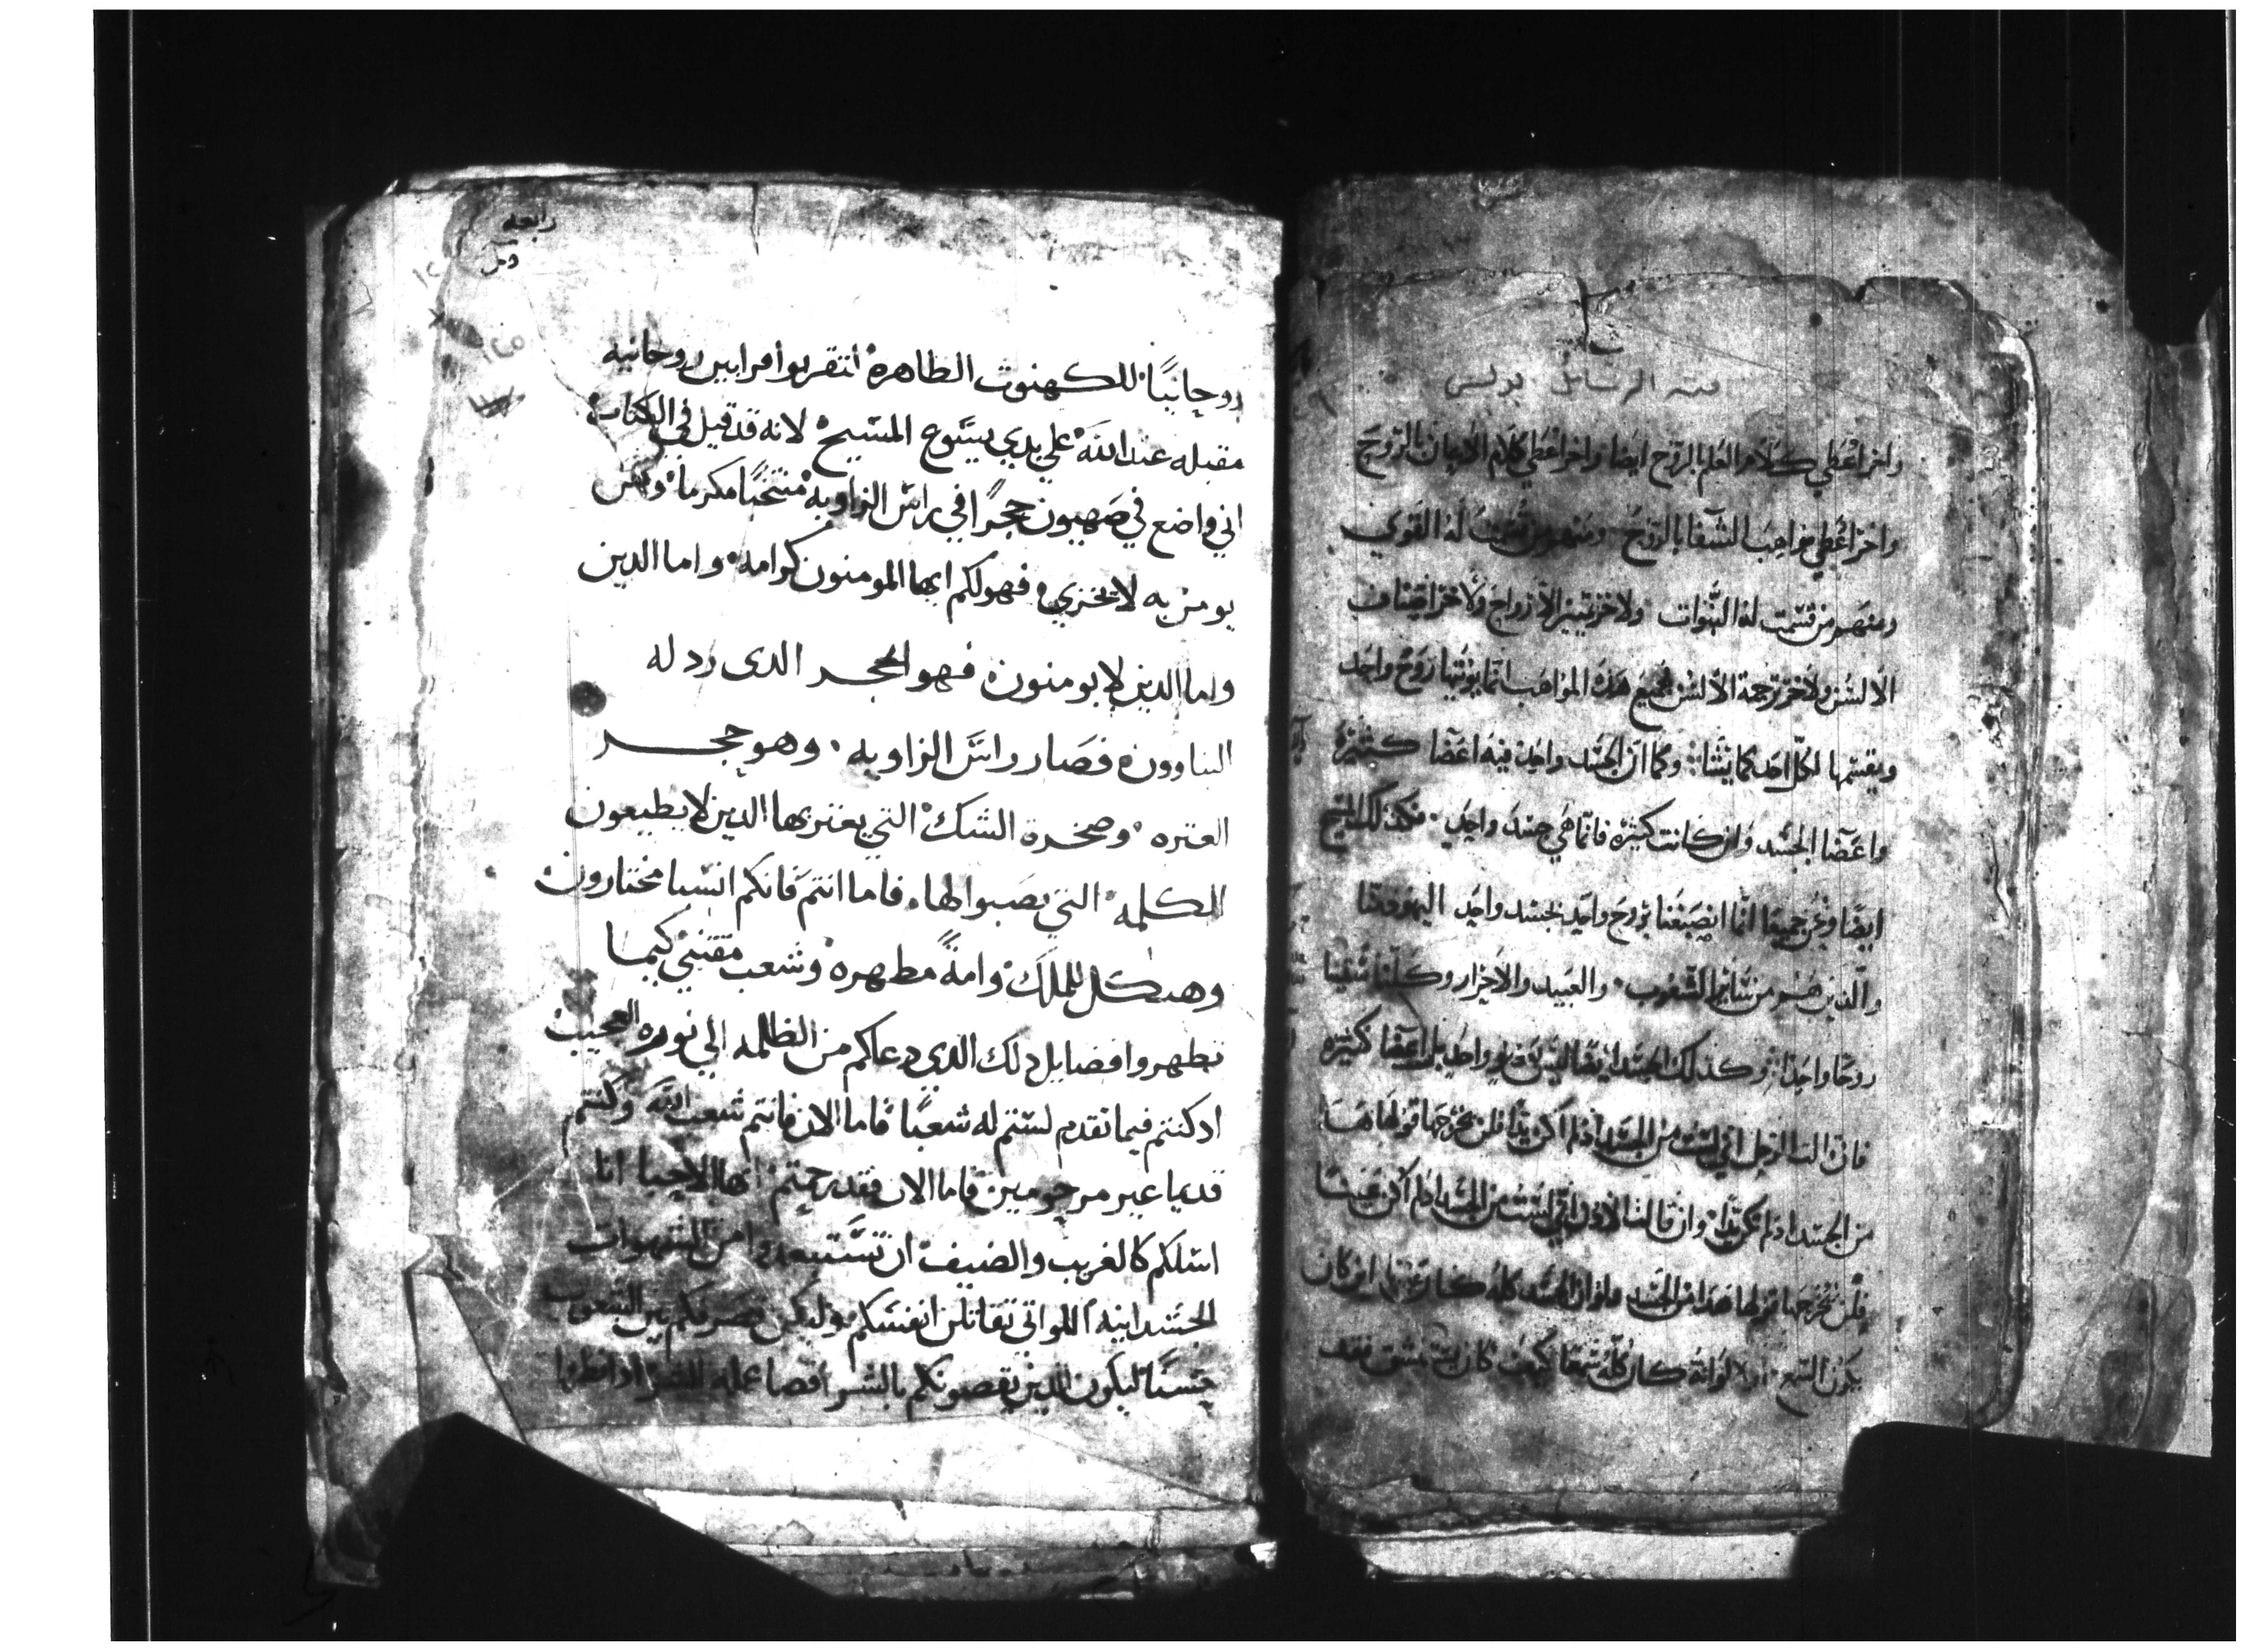 منه الرسايل بولس
واخر اعطي كلام العلم بالروح ايضا واخر اعطي كلام الايمان بالروح
واخر اعطي مواهب الشفا بالروح ومنهم من قسمت له القوي
ومنهم من قسمت له النبوات ولاخر تمييز الارواح ولاخر اصناف
الالسن ولاخر ترجمة الالسن فجميع هذه المواهب انما يوتيها روح واحد
ويقسمها لكل احد كما يشا وكما ان الجسد واحد فيه اعضا كثيرة
واعضا الجسد وان كانت كثيره فانما هي جسد واحد فكذلك المسيح
ايضا ونحن جميعا انما انصبغنا بروح واحد لجسد واحد اليهود منا
والذين هم من سائر الشعوب والعبيد والاحرار وكلنا سقينا
روحا واحدا وكذلك الجسد ايضا ليس عضو واحد بل اعضا كثيره
فان قالت الرجل اني لست من الجسد اذ لم اكن يدا فلن يخرجها قولها هذا
من الجسد اذ لم تكن يدا وان قالت الاذن اني لست من الجسد اذ لم اكن عينا
فلن يخرجها قولها هذا من الجسد ولو ان الجسد كله كان عينا اين كان
يكون السمع اولا لوانه كان كله سمعا كيف كان
رابعه
١٢٥
روحانيا للكهنوت الطاهره لتقربوا قرابين روحانيه
مقبله عند الله علي يدي يسوع المسيح لانه قد قيل في الكتاب
اني واضع في صهيون حجرا في راس الزاويه منتخبا مكرما ومن
يومن به لا يخزي فهو لكم ايها المومنون كرامه واما الدين
واما الدين لا يومنون فهو الحجر الدى رد له
البناوون فصار راس الزاويه وهو حجر
العتره وصخرة الشك التي يعتر بها الدين لا يطيعون
الكلمه التي نصبوا لها فاما انتم فانكم انسبا مختارون
وهيكل للملك وامة مطهره وشعب مقتني كيما
تطهروا فضايل دلك الدي دعاكم من الظلمه الي نوره العجيب
اد كنتم فيما تقدم لستم له شعبا فاما الان فانتم شعب الله وكنتم
قديما غير مرحومين فاما الان فقد رحمتم ايها الاحبا انا
اسلكم كالغريب والضيف ان تستبعدوا من الشهوات
الجسدانيه اللواتي تقاتلن انفسكم وليكن تصرفكم بين الشعوب
حسنا ليكون الدين يقصونكم بالشر